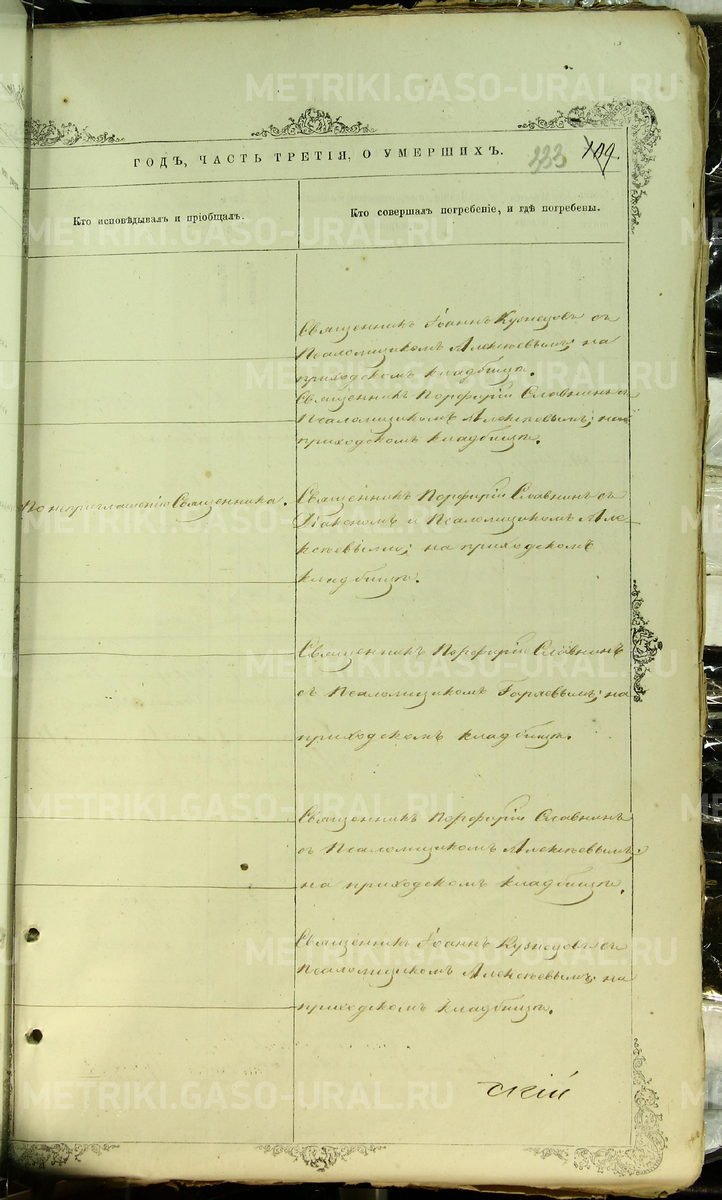 METRIKI.GASO-URAL.RU
ГОДЪ, ЧАСТЬ ТРЕТІЯ, О УМЕРШИХЪ.
333 109.
Кто исповѣдывалъ и пріобщалъ.
Кто совершалъ погребеніе, и гдѣ погребены.
Священникъ Іоаннъ Кузнецовъ съ
Псаломщикомъ Алексѣевымъ; на
приходскомъ кладбищѣ.
Священникъ Порфирій Славнинъ съ
Псаломщикомъ Алексѣевымъ; на
приходскомъ кладбищѣ.
По неприглашенію Священника.
Священникъ Порфирій Славнинъ съ
и Псаломщикомъ Але-
ксѣевыми; на приходскомъ
кладбищѣ.
Священникъ Порфирій Славнинъ
съ Псаломщикомъ Горяевымъ; на
приходскомъ кладбищѣ.
Священникъ Порфирій Славнинъ
съ Псаломщикомъ Алексѣевымъ;
на приходскомъ кладбищѣ.
Священникъ Іоаннъ Кузнецовъ съ
Псаломщикомъ Алексѣевымъ; на
приходскомъ кладбищѣ.
скій